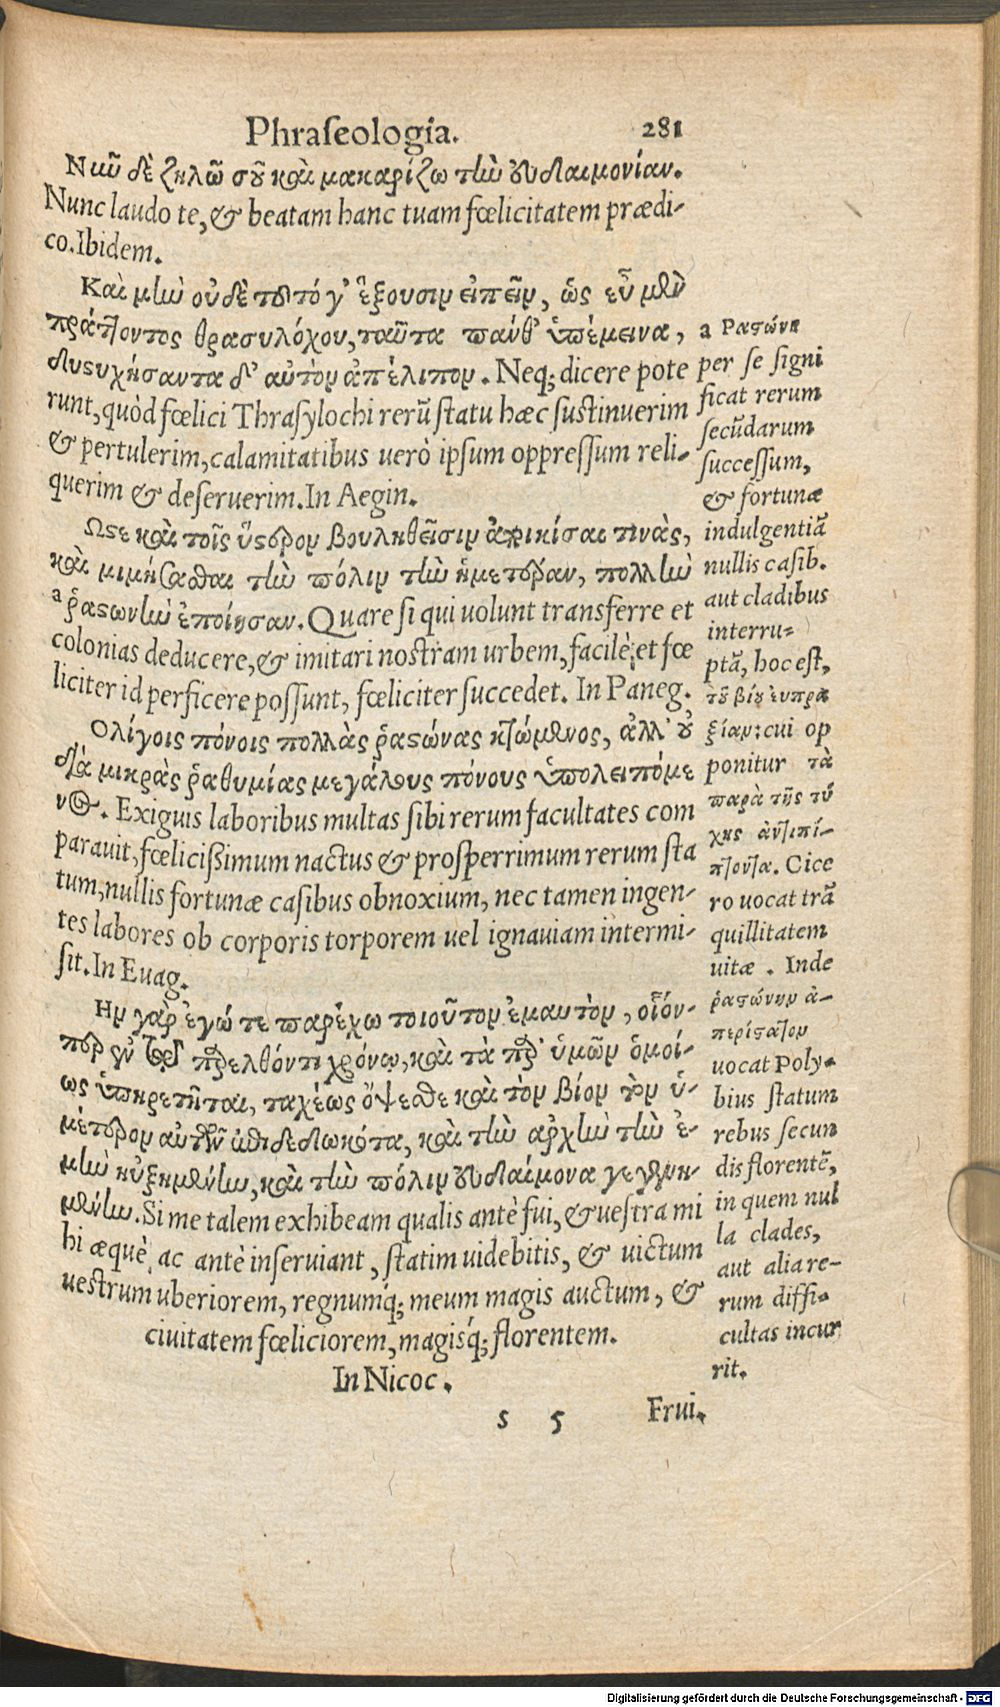 Phraſeologia. 281
Νιῦ δὲ ζηλῶ σοῦ καὶ μακαρίζω τὴν εὐδαιμονίαν.
Nunc laudo te, & beatam hanc tuam fœlicitatem prædi-
co. Ibidem.
Καὶ μὴν οὐδὲ τοῦτό γ' ἕξουσιν εἰπεῖν, ὡς εὖ μὲν
πράττοντος θρασυλόχου, ταῦτα πάνθ' ὑπέμεινα,
δυςυχήσαντα δ' αὐτὸν ἀπέλιπον. Neq; dicere pote
runt, quòd fœlici Thraſylochi rerū ſtatu hæc ſuſtinuerim
& pertulerim, calamitatibus uerò ipſum oppreſſum reli-
querim & deſeruerim. In Aegin.
Ωςε καὶ τοῖς ὕςερον βουληθεῖσιν ἀποικίσαι τινὰς,
καὶ μιμήσασθαι τὴν πόλιν τὴν ἡμετέραν, πολλὴν
a ῥᾳςωνὴν ἐποίησαν. Quare ſi qui uolunt transferre et
colonias deducere, & imitari noſtram urbem, facilè et fœ
liciter id perficere poſſunt, fœliciter ſuccedet. In Paneg.
Ολίγοις πόνοις πολλὰς ῥᾳςώνας κτώμενος, ἀλλ' οὐ
διὰ μικρὰς ῥᾳθυμίας μεγάλους πόνους ὑπολειπόμε
νος. Exiguis laboribus multas ſibi rerum facultates com
parauit, fœliciſsimum nactus & proſperrimum rerum ſta
tum, nullis fortunæ caſibus obnoxium, nec tamen ingen-
tes labores ob corporis torporem uel ignauiam intermi-
ſit. In Euag.
Ην γὰρ ἐγώ τε παρέχω τοιοῦτον ἐμαυτὸν, οἷόν-
περ ἐν τῷ παρελθόντι χρόνῳ, καὶ τὰ παρ' ὑμῶν ὁμοί-
ως ὑπηρετῆται, ταχέως ὄψεσθε καὶ τὸν βίον τὸν ὑ-
μέτερον αὐτῶν ἐπιδεδωκότα, καὶ τὴν ἀρχὴν τὴν ἐ-
μὴν ηὐξημένην, καὶ τὴν πόλιν εὐδαίμονα γεγενη-
μένην. Si me talem exhibeam qualis antè fui, & ueſtra mi
hi æquè ac antè inſeruiant, ſtatim uidebitis, & uictum
ueſtrum uberiorem, regnumq́; meum magis auctum, &
ciuitatem fœliciorem, magisq́; florentem.
In Nicoc.
s 5 Frui.
a Ραςώνη
per ſe ſigni
ficat rerum
ſecūdarum
ſucceſſum,
& fortunæ
indulgentiā
nullis caſib.
aut cladibus
interru-
ptā, hoc eſt,
τοῦ βίου εὐπρα
ξίαν: cui op
ponitur τὰ
παρὰ τῆς τύ
χης ἀντιπί-
πτοντα. Cice
ro uocat trā
quillitatem
uitæ. Inde
ῥᾳςώνην ἀ-
περίςατον
uocat Poly-
bius ſtatum
rebus ſecun
dis florentē,
in quem nul
la clades,
aut alia re-
rum diffi-
cultas incur
rit.
Digitalisierung gefördert durch die Deutsche Forschungsgemeinschaft - DFG